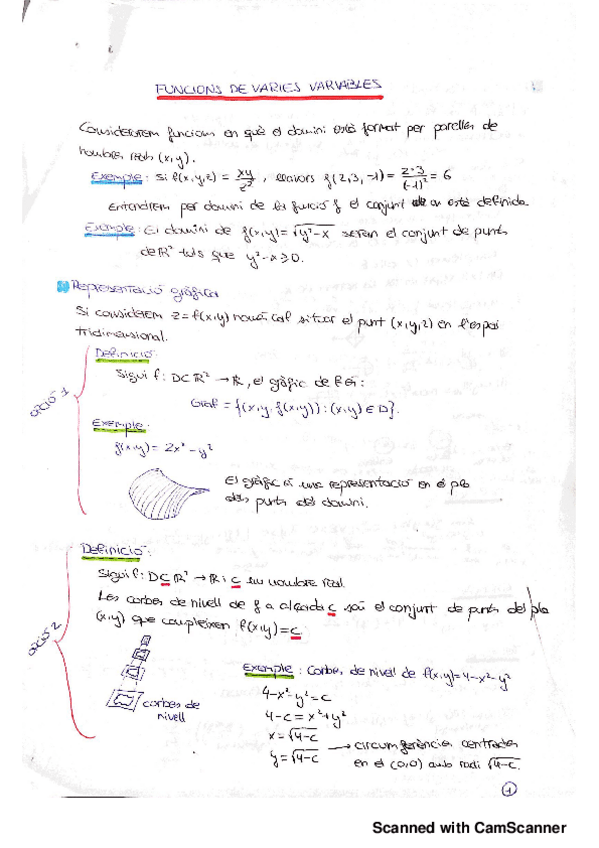 FUNCIONS DE VARIES VARIABLES
Considerarem funcions en què el domini està format per parelles de
nombres reals (x,y).
Exemple: Si f(x,y,z) = xy/z², llavors f(2,3,-1) = 2·3/(-1)² = 6
Entendrem per domini de la funció f el conjunt on està definida.
Exemple: El domini de f(x,y) = √(y²-x) seran el conjunt de punts
de ℝ² tals que y²-x ≥ 0.
Representació gràfica
Si considerem z = f(x,y) només cal situar el punt (x,y,z) en l'espai
tridimensional.
OPCIÓ 1
Definició:
Sigui f: D⊂ℝ² → ℝ, el gràfic de f és:
Graf = {(x,y,f(x,y)) : (x,y) ∈ D}.
Exemple:
f(x,y) = 2x² - y²
El gràfic és una representació en el pla
dels punts del domini.
OPCIÓ 2
Definició:
Sigui f: D⊂ℝ² → ℝ i c un nombre real
Les corbes de nivell de f a alçada c són el conjunt de punts del pla
(x,y) que compleixen f(x,y) = c
corbes de
nivell
Exemple: Corbes de nivell de f(x,y) = 4-x²-y²
4-x²-y² = c
4-c = x²+y²
x = √(4-c)
y = √(4-c) → circumferències centrades
en el (0,0) amb radi √(4-c).
1
Scanned with CamScanner